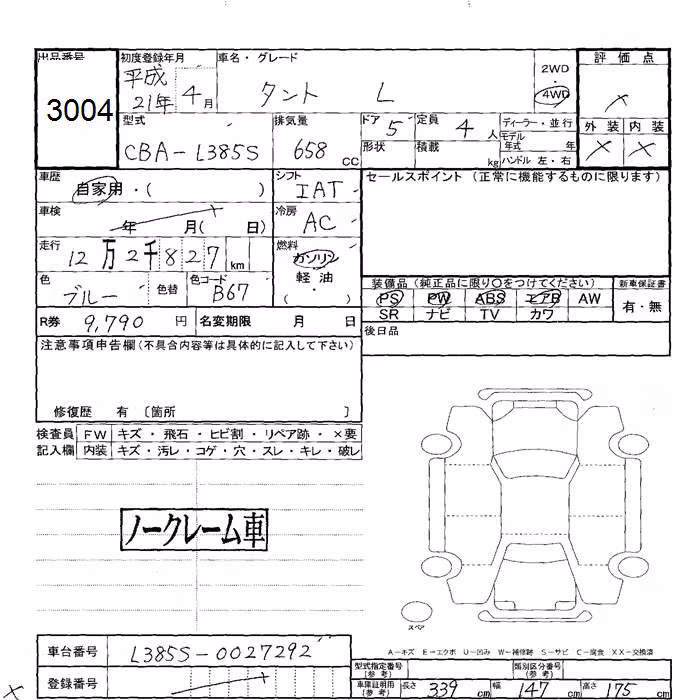 出品番号 初度登録年月 車名・グレード 2WD 評価点
3004 平成21年4月 タント L 4WD ×
型式 排気量 ドア 5 定員 4人 ディーラー・並行 外装 内装
CBA-L385S 658 CC 形状 積載 kg モデル年式 年 × ×
ハンドル 左・右
車歴 自家用・( ) シフト IAT セールスポイント (正常に機能するものに限ります)
車検 年 月( 日) 冷房 AC
走行 12万2千827km 燃料 ガソリン
軽油
( )
色 ブルー 色替 色コード B67
装備品 (純正品に限り○をつけてください) 新車保証書
PS PW ABS エアB AW 有・無
SR ナビ TV カワ
R券 9,790円 名変期限 月 日 後日品
注意事項申告欄 (不具合内容等は具体的に記入して下さい)
修復歴 有 〔箇所 〕
検査員 FW キズ・飛石・ヒビ割・リペア跡・×要
記入欄 内装 キズ・汚レ・コゲ・穴・スレ・キレ・破レ
ノークレーム車
スペア
A-キズ E-エクボ U-凹み W-補修跡 S-サビ C-腐食 XX-交換済
車台番号 L385S-0027292
型式指定番号(参考) 類別区分番号(参考)
登録番号
車庫証明用(参考) 長さ 339cm 幅 147cm 高さ 175cm
×